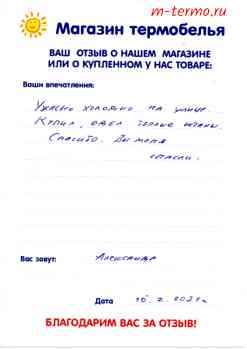 m-termo.ru
Магазин термобелья
ВАШ ОТЗЫВ О НАШЕМ МАГАЗИНЕ
ИЛИ О КУПЛЕННОМ У НАС ТОВАРЕ:
Ваши впечатления:
Ужасно холодно на улице.
Купил, одел теплые штаны.
Спасибо. Вы меня
спасли.
Вас зовут: Александр
Дата 16.2.2021г
БЛАГОДАРИМ ВАС ЗА ОТЗЫВ!